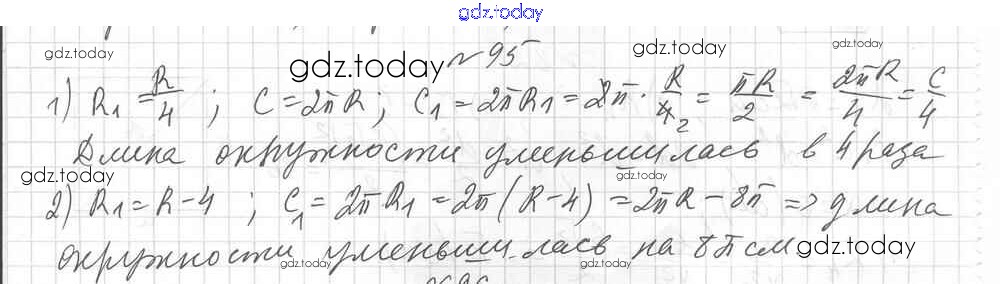 gdz.today
gdz.today gdz.today gdz.today
gdz.today
№95
1) R₁ = R/4 ; C = 2πR; C₁ = 2πR₁ = 2π · R/4₂ = πR/2 = 2πR/4 = C/4
Длина окружности уменьшилась в 4 раза
gdz.today gdz.today
2) R₁ = R - 4 ; C₁ = 2πR₁ = 2π(R - 4) = 2πR - 8π => длина
окружности уменьшилась на 8π см
gdz.today gdz.today gdz.today